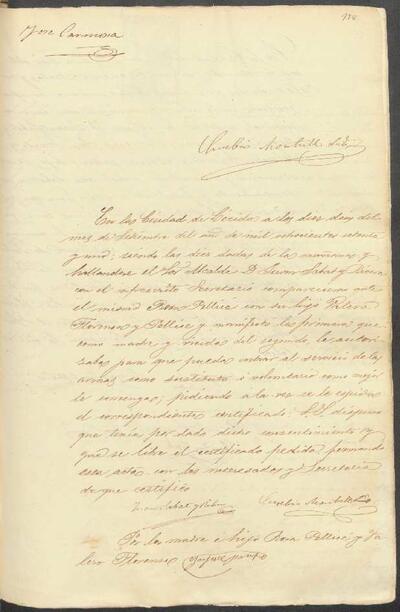 Jose Carmona
Eusebio Montull Srio
En la Ciudad de Lerida a los diez dias del
mes de Setiembre del año de mil ochocientos setenta
y uno: siendo las diez dadas de la mañana y
hallandose el Sor Alcalde D.
con el infrascrito Secretario comparecieron ante
el mismo Rosa Pellicé con su hijo Valero
Florensa y Pellicé y manifestó la primera que
como madre y viuda del segundo le autori-
zaba para que pueda entrar al servicio de las
armas como sustituto o voluntario como mejor
le convenga; pidiendo a la vez se le espidiera
el correspondiente certificado. S.S. dispuso
que tenia por dado dicho consentimiento y
que se libre el certificado pedido firmando
esta acta con los interesados y Secretario
de que certifico
Eusebio Montull Srio
Por la madre é hijo Rosa Pellicé y Va-
lero Florensa